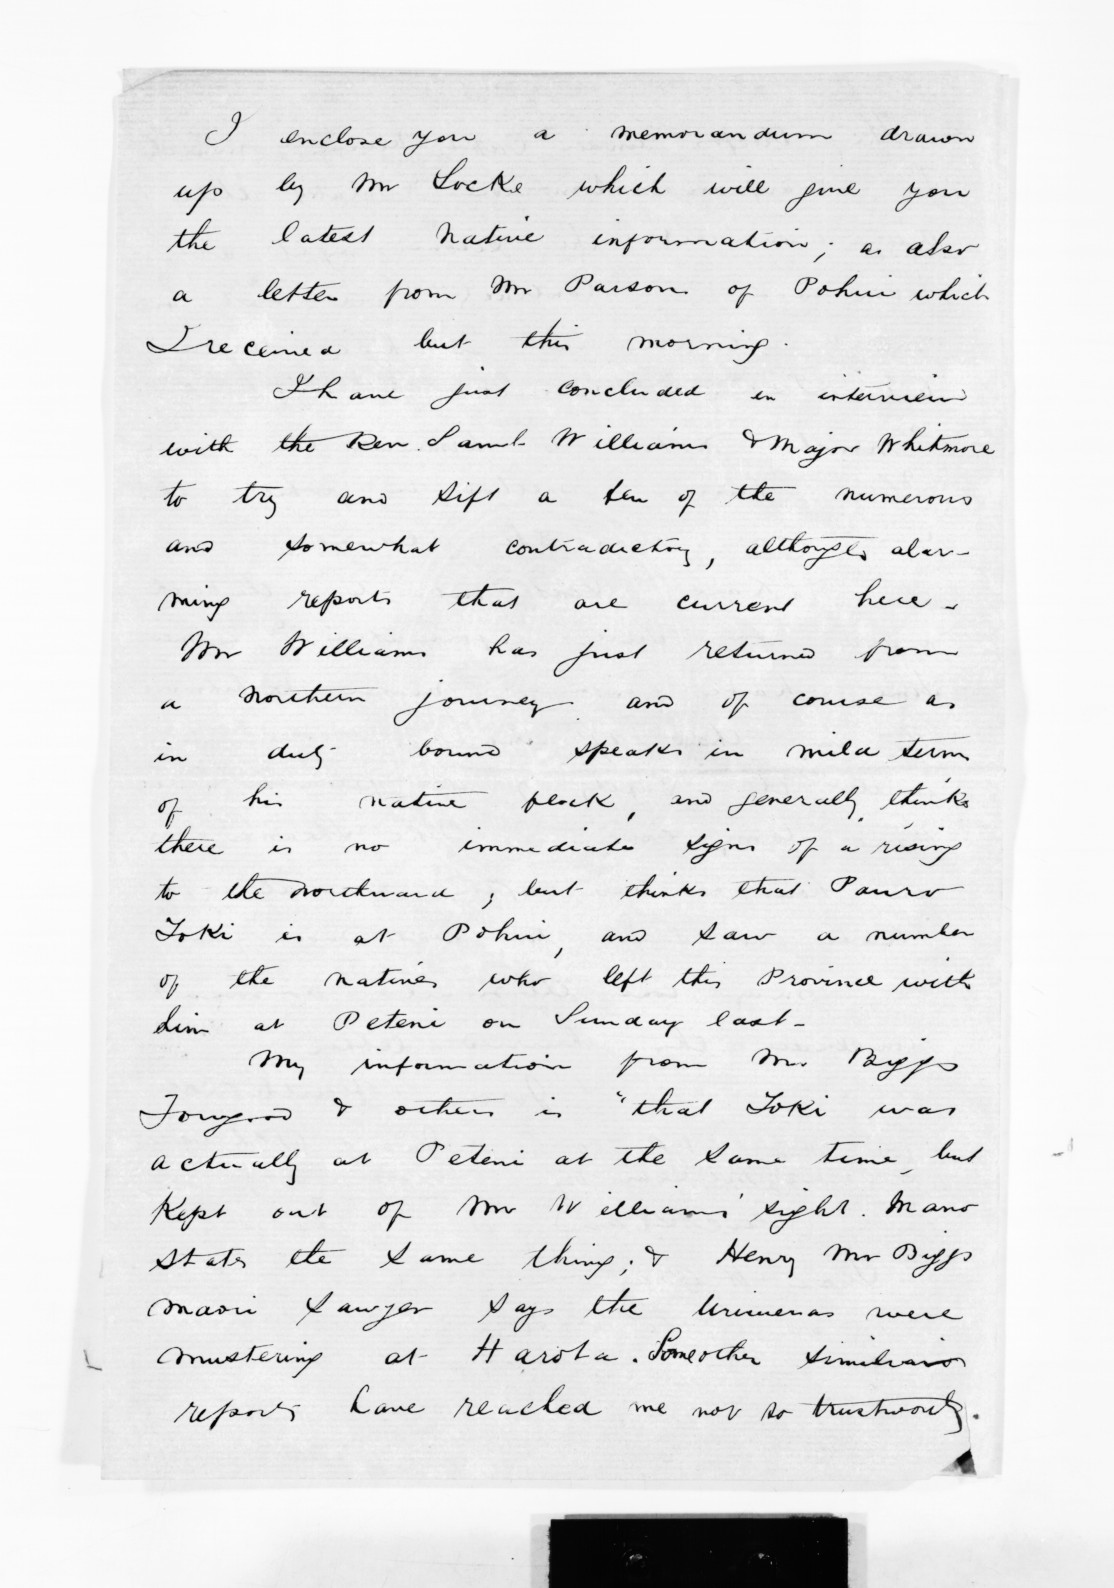 I enclose you a memorandum drawn
up by Mr Locke which will give you
the latest Native information; as also
a letter from Mr Parsons of Pohui which
I received but this morning.
I have just concluded an interview
with the Rev. Saml. Williams & Major Whitmore
to try and sift a few of the numerous
and somewhat contradictory, although alar-
ming reports that are current here -
Mr Williams has just returned from
a Northern journey and of course as
in duty bound speaks in mild terms
of his native flock, and generally thinks
there is no immediate signs of a rising
to the northward; but thinks that Pauro
Toki is at Pohui, and saw a number
of the natives who left this Province with
him at Peteni on Sunday last -
My information from Mr Biggs
Torygood & others is "that Toki was
actually at Peteni at the same time, but
kept out of Mr Williams' sight. Mano
states the same thing; & Henry Mr Biggs
maori sawyer says the Uriweras were
mustering at Harota. Some other similiar
reports have reached me not so trustworthy.